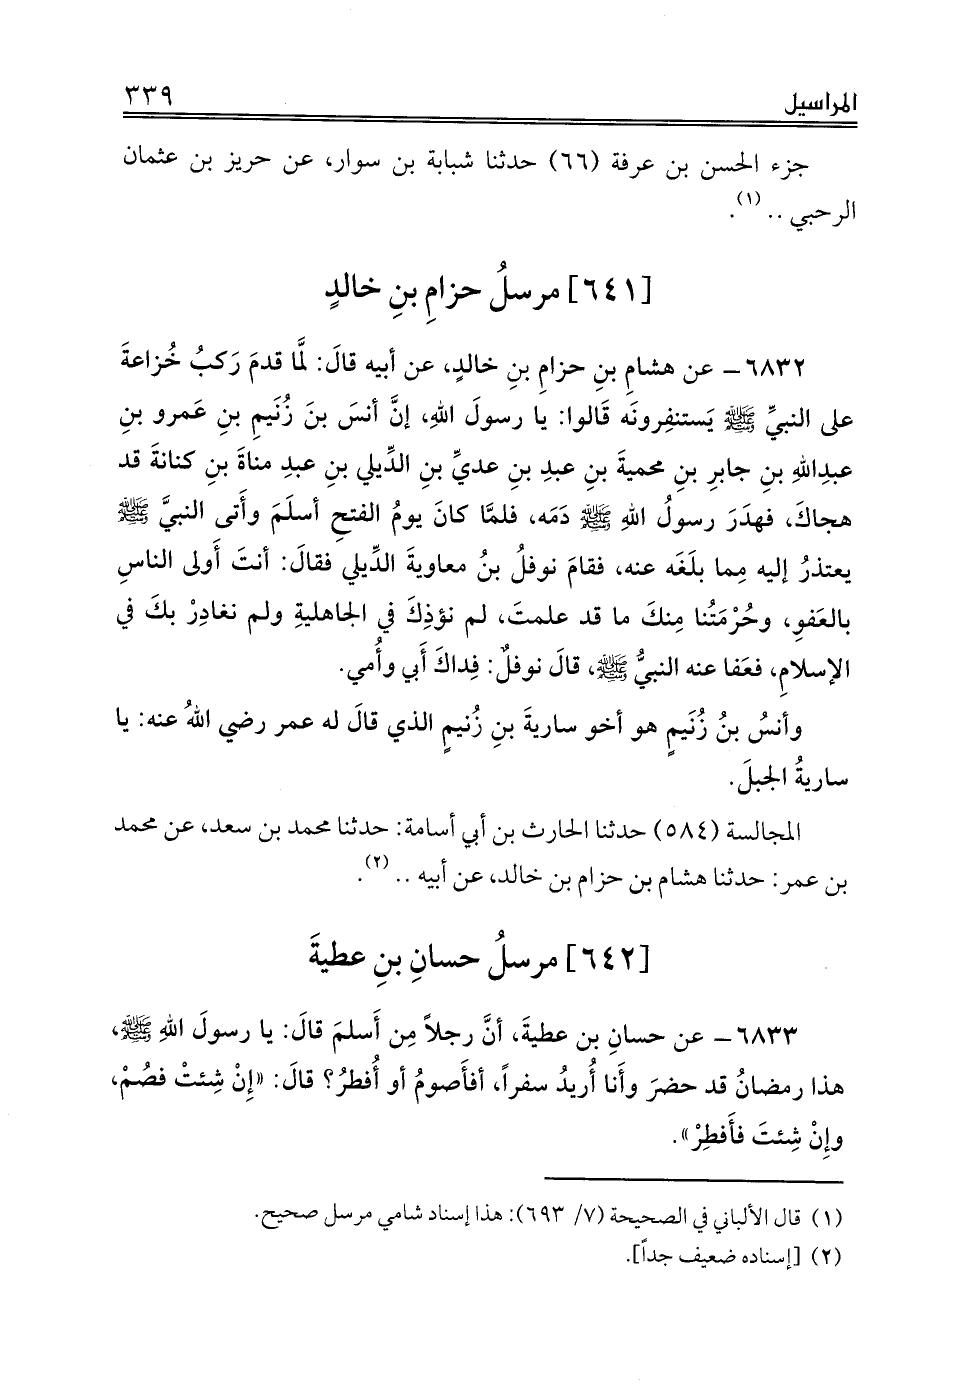 المراسيل
٣٣٩
جزء الحسن بن عرفة (٦٦) حدثنا شبابة بن سوار، عن حريز بن عثمان
الرحبي .. (١).
[٦٤١] مرسلُ حزامِ بنِ خالدٍ
٦٨٣٢ – عن هشامِ بنِ حزامِ بنِ خالدٍ، عن أبيه قالَ: لمَّا قدمَ رَكبُ خُزاعةَ
على النبيِّ ﷺ يَستنفِرونَه قَالوا: يا رسولَ اللهِ، إنَّ أنسَ بنَ زُنَيمِ بنِ عَمرو بنِ
عبدِاللهِ بنِ جابرِ بنِ محميةَ بنِ عبدِ بنِ عديِّ بنِ الدِّيلي بنِ عبدِ مناةَ بنِ كنانةَ قد
هجاكَ، فهدَرَ رسولُ اللهِ ﷺ دَمَه، فلمَّا كانَ يومُ الفتحِ أسلَمَ وأَتى النبيَّ ﷺ
يعتذرُ إليه مِما بلَغَه عنه، فقامَ نوفلُ بنُ معاويةَ الدِّيلي فقالَ: أنتَ أَولى الناسِ
بالعَفوِ، وحُرْمَتُنا مِنكَ ما قد علمتَ، لم نؤذِكَ في الجاهليةِ ولم نغادِرْ بكَ في
الإسلامِ، فعَفا عنه النبيُّ ﷺ، قالَ نوفلٌ: فِداكَ أَبي وأُمي.
وأنسُ بنُ زُنَيمٍ هو أخو ساريةَ بنِ زُنيمٍ الذي قالَ له عمر رضي اللهُ عنه: يا
ساريةُ الجبلَ.
المجالسة (٥٨٤) حدثنا الحارث بن أبي أسامة: حدثنا محمد بن سعد، عن محمد
بن عمر: حدثنا هشام بن حزام بن خالد، عن أبيه .. (٢).
[٦٤٢] مرسلُ حسانِ بنِ عطيةَ
٦٨٣٣ – عن حسانِ بنِ عطيةَ، أنَّ رجلاً مِن أَسلمَ قالَ: يا رسولَ اللهِ ﷺ،
هذا رمضانُ قد حضرَ وأَنا أُريدُ سفراً، أفأَصومُ أو أُفطرُ؟ قالَ: «إِنْ شِئتْ فصُمْ،
وإِنْ شِئتَ فأَفطِرْ».
(١) قال الألباني في الصحيحة (٧/ ٦٩٣): هذا إسناد شامي مرسل صحيح.
(٢) [إسناده ضعيف جداً].